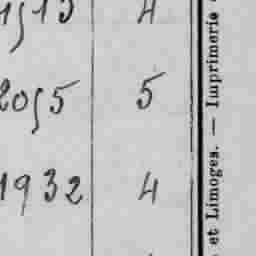 2055 5
1932 4
et Limoges. — Imprimerie